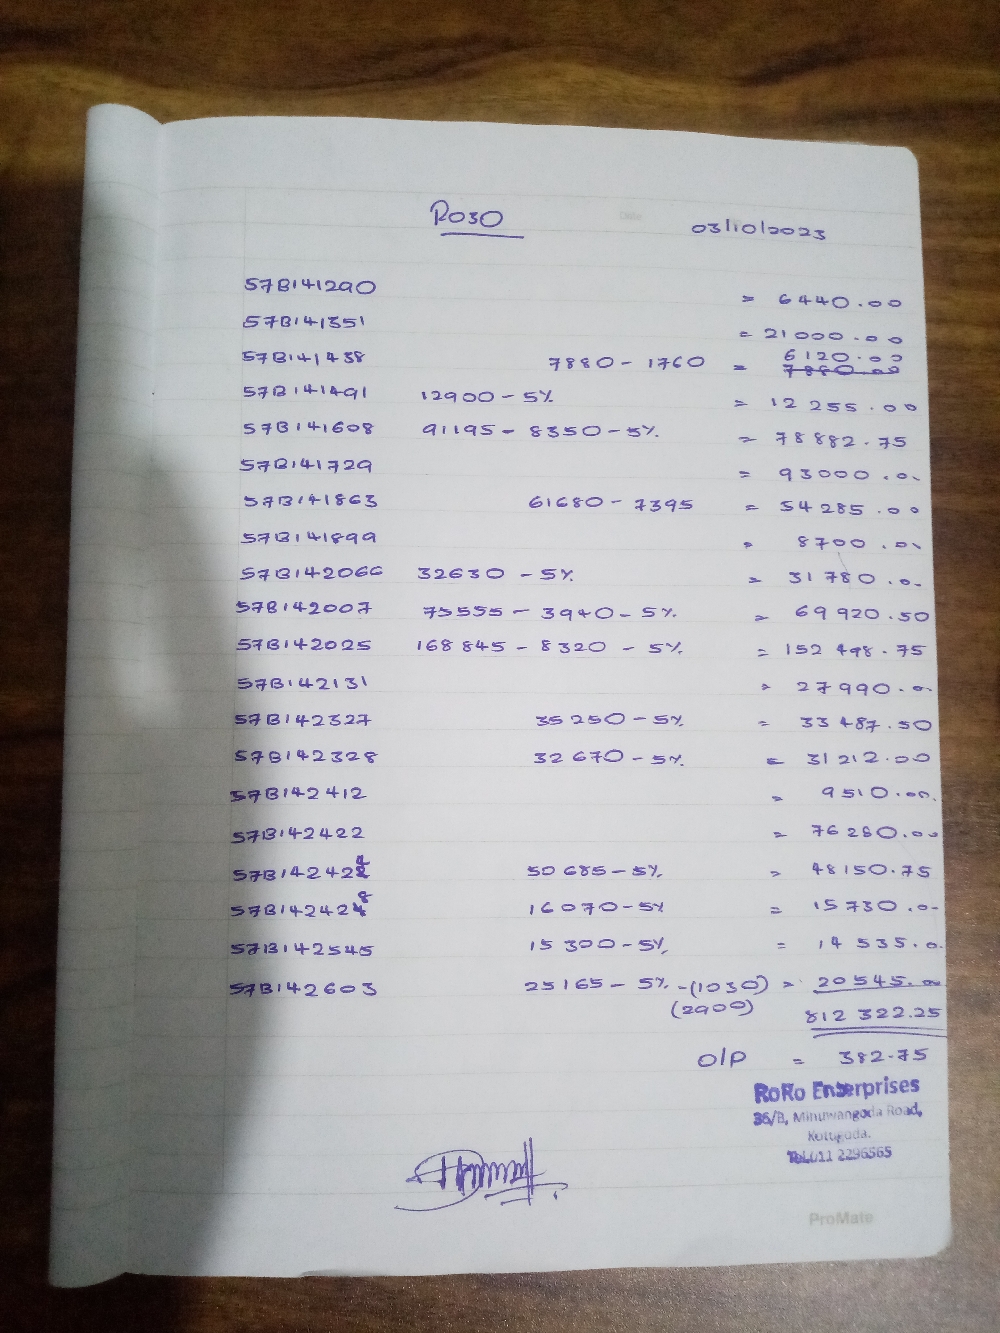 R030
03/10/2023
57B141290 = 6440.00
57B141351 = 21000.00
6120.00
57B141438 7880 - 1760 = 7880.00
57B141491 12900 - 5% = 12 255.00
57B141608 91195 - 8350 - 5% = 78882.75
57B141729 = 93000.00
57B141863 61680 - 7395 = 54285.00
57B141899 = 8700.00
57B142066 32630 - 5% = 31780.00
57B142007 75555 - 3940 - 5% = 69920.50
57B142025 168845 - 8320 - 5% = 152 498.75
57B142131 = 27990.00
57B142327 35250 - 5% = 33487.50
57B142328 32670 - 5% = 31212.00
57B142412 = 9510.00
57B142422 = 76280.00
57B142424 50685 - 5% = 48150.75
57B142428 16070 - 5% = 15730.00
57B142545 15300 - 5% = 14535.0
57B142603 25165 - 5% - (1030) = 20545.00
(2900)
812 322.25
O/P = 382.75
RoRo Enterprises
36/B, Minuwangoda Road,
Kotugoda.
Tel: 011 2296565
ProMate